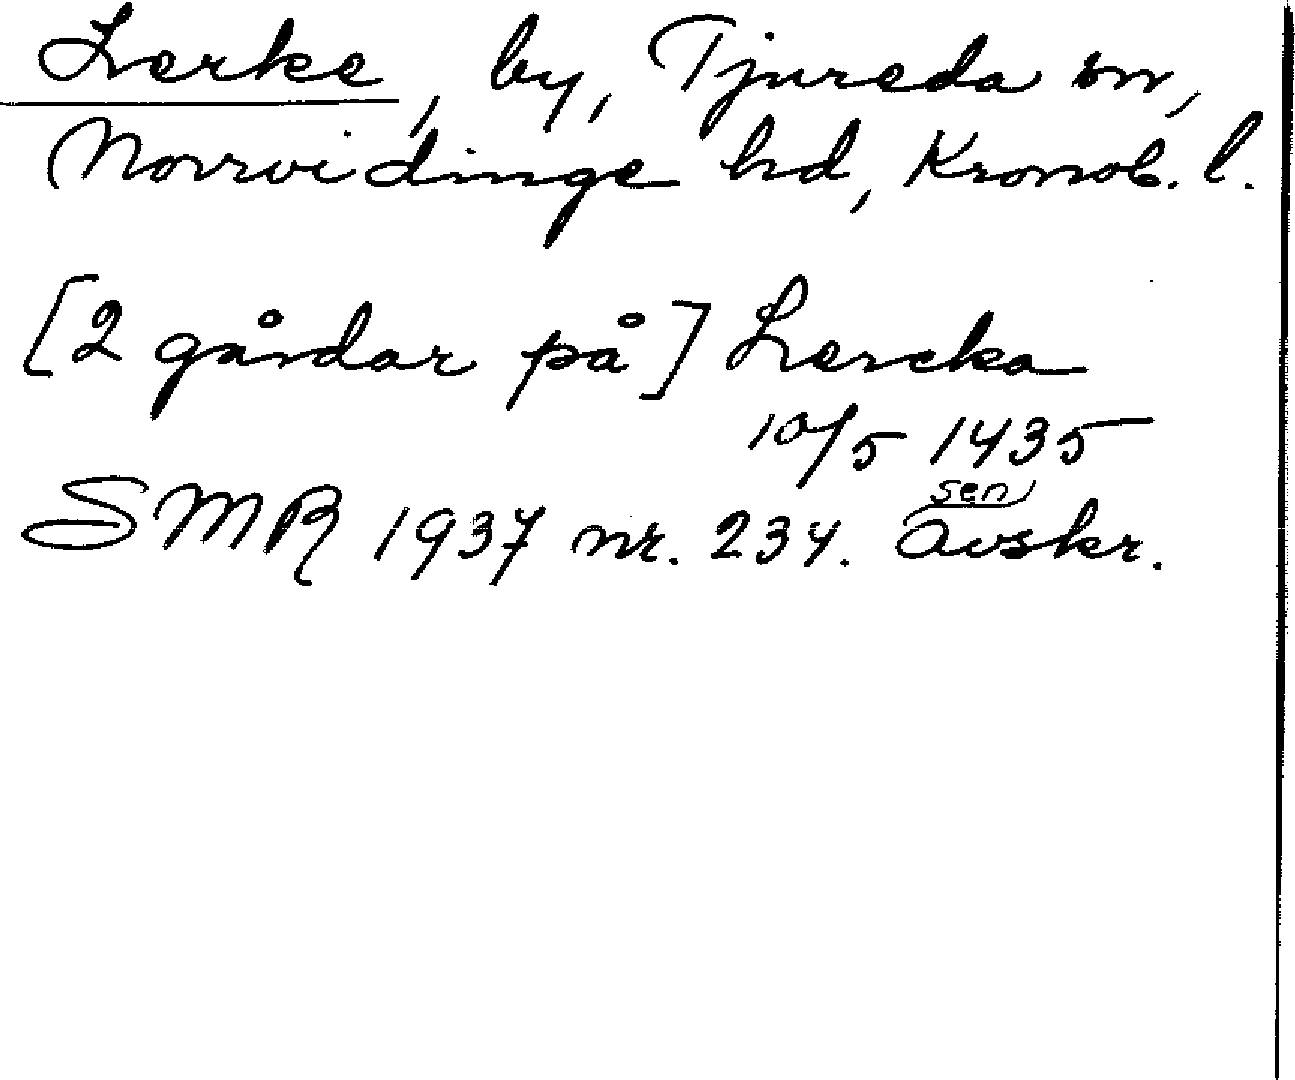 Lerke, by, Tjureda sn,
Norrvidinge hd, Kronob. l.
[2 gårdar på] Lercka
10/5 1435
SMR 1937 nr. 234. sen avskr.